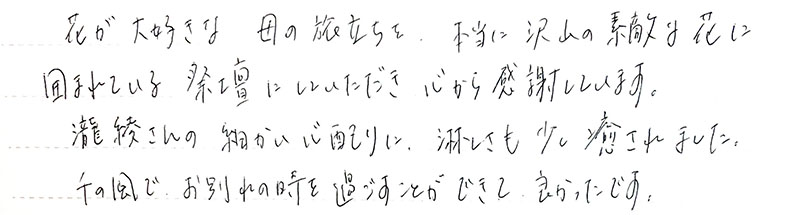 花が大好きな 母の旅立ちを、本当に沢山の素敵な花に
囲まれている祭壇にしいただき 心から感謝しています。
瀧綾さんの細かい心配りに、淋しさも少し癒されました。
千の風で、お別れの時を過ごすことができて、良かったです。